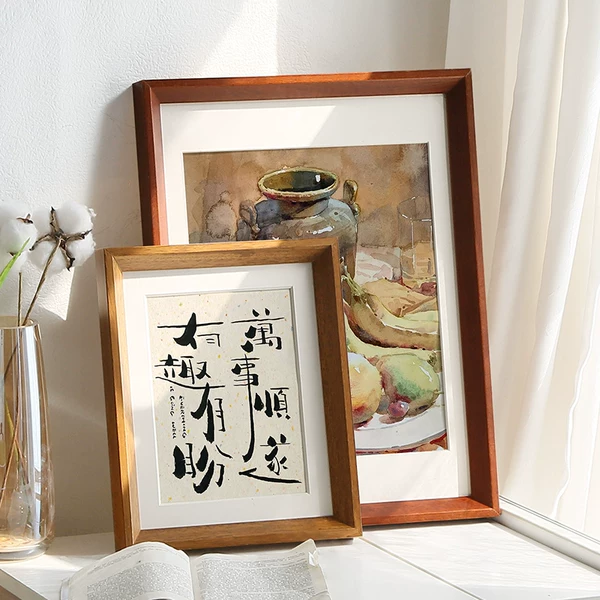 萬事順遂
有趣有盼